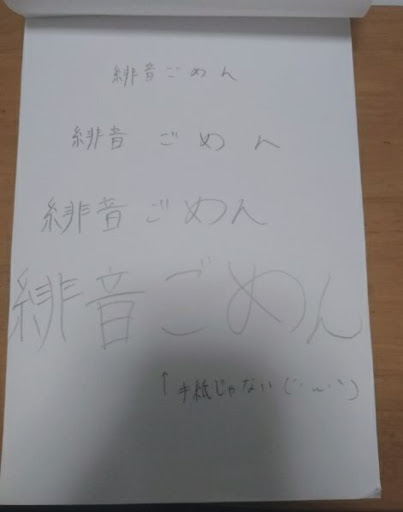 緋音ごめん
緋音 ごめん
緋音ごめん
緋音ごめん
↑手紙じゃない(´・ω・`)